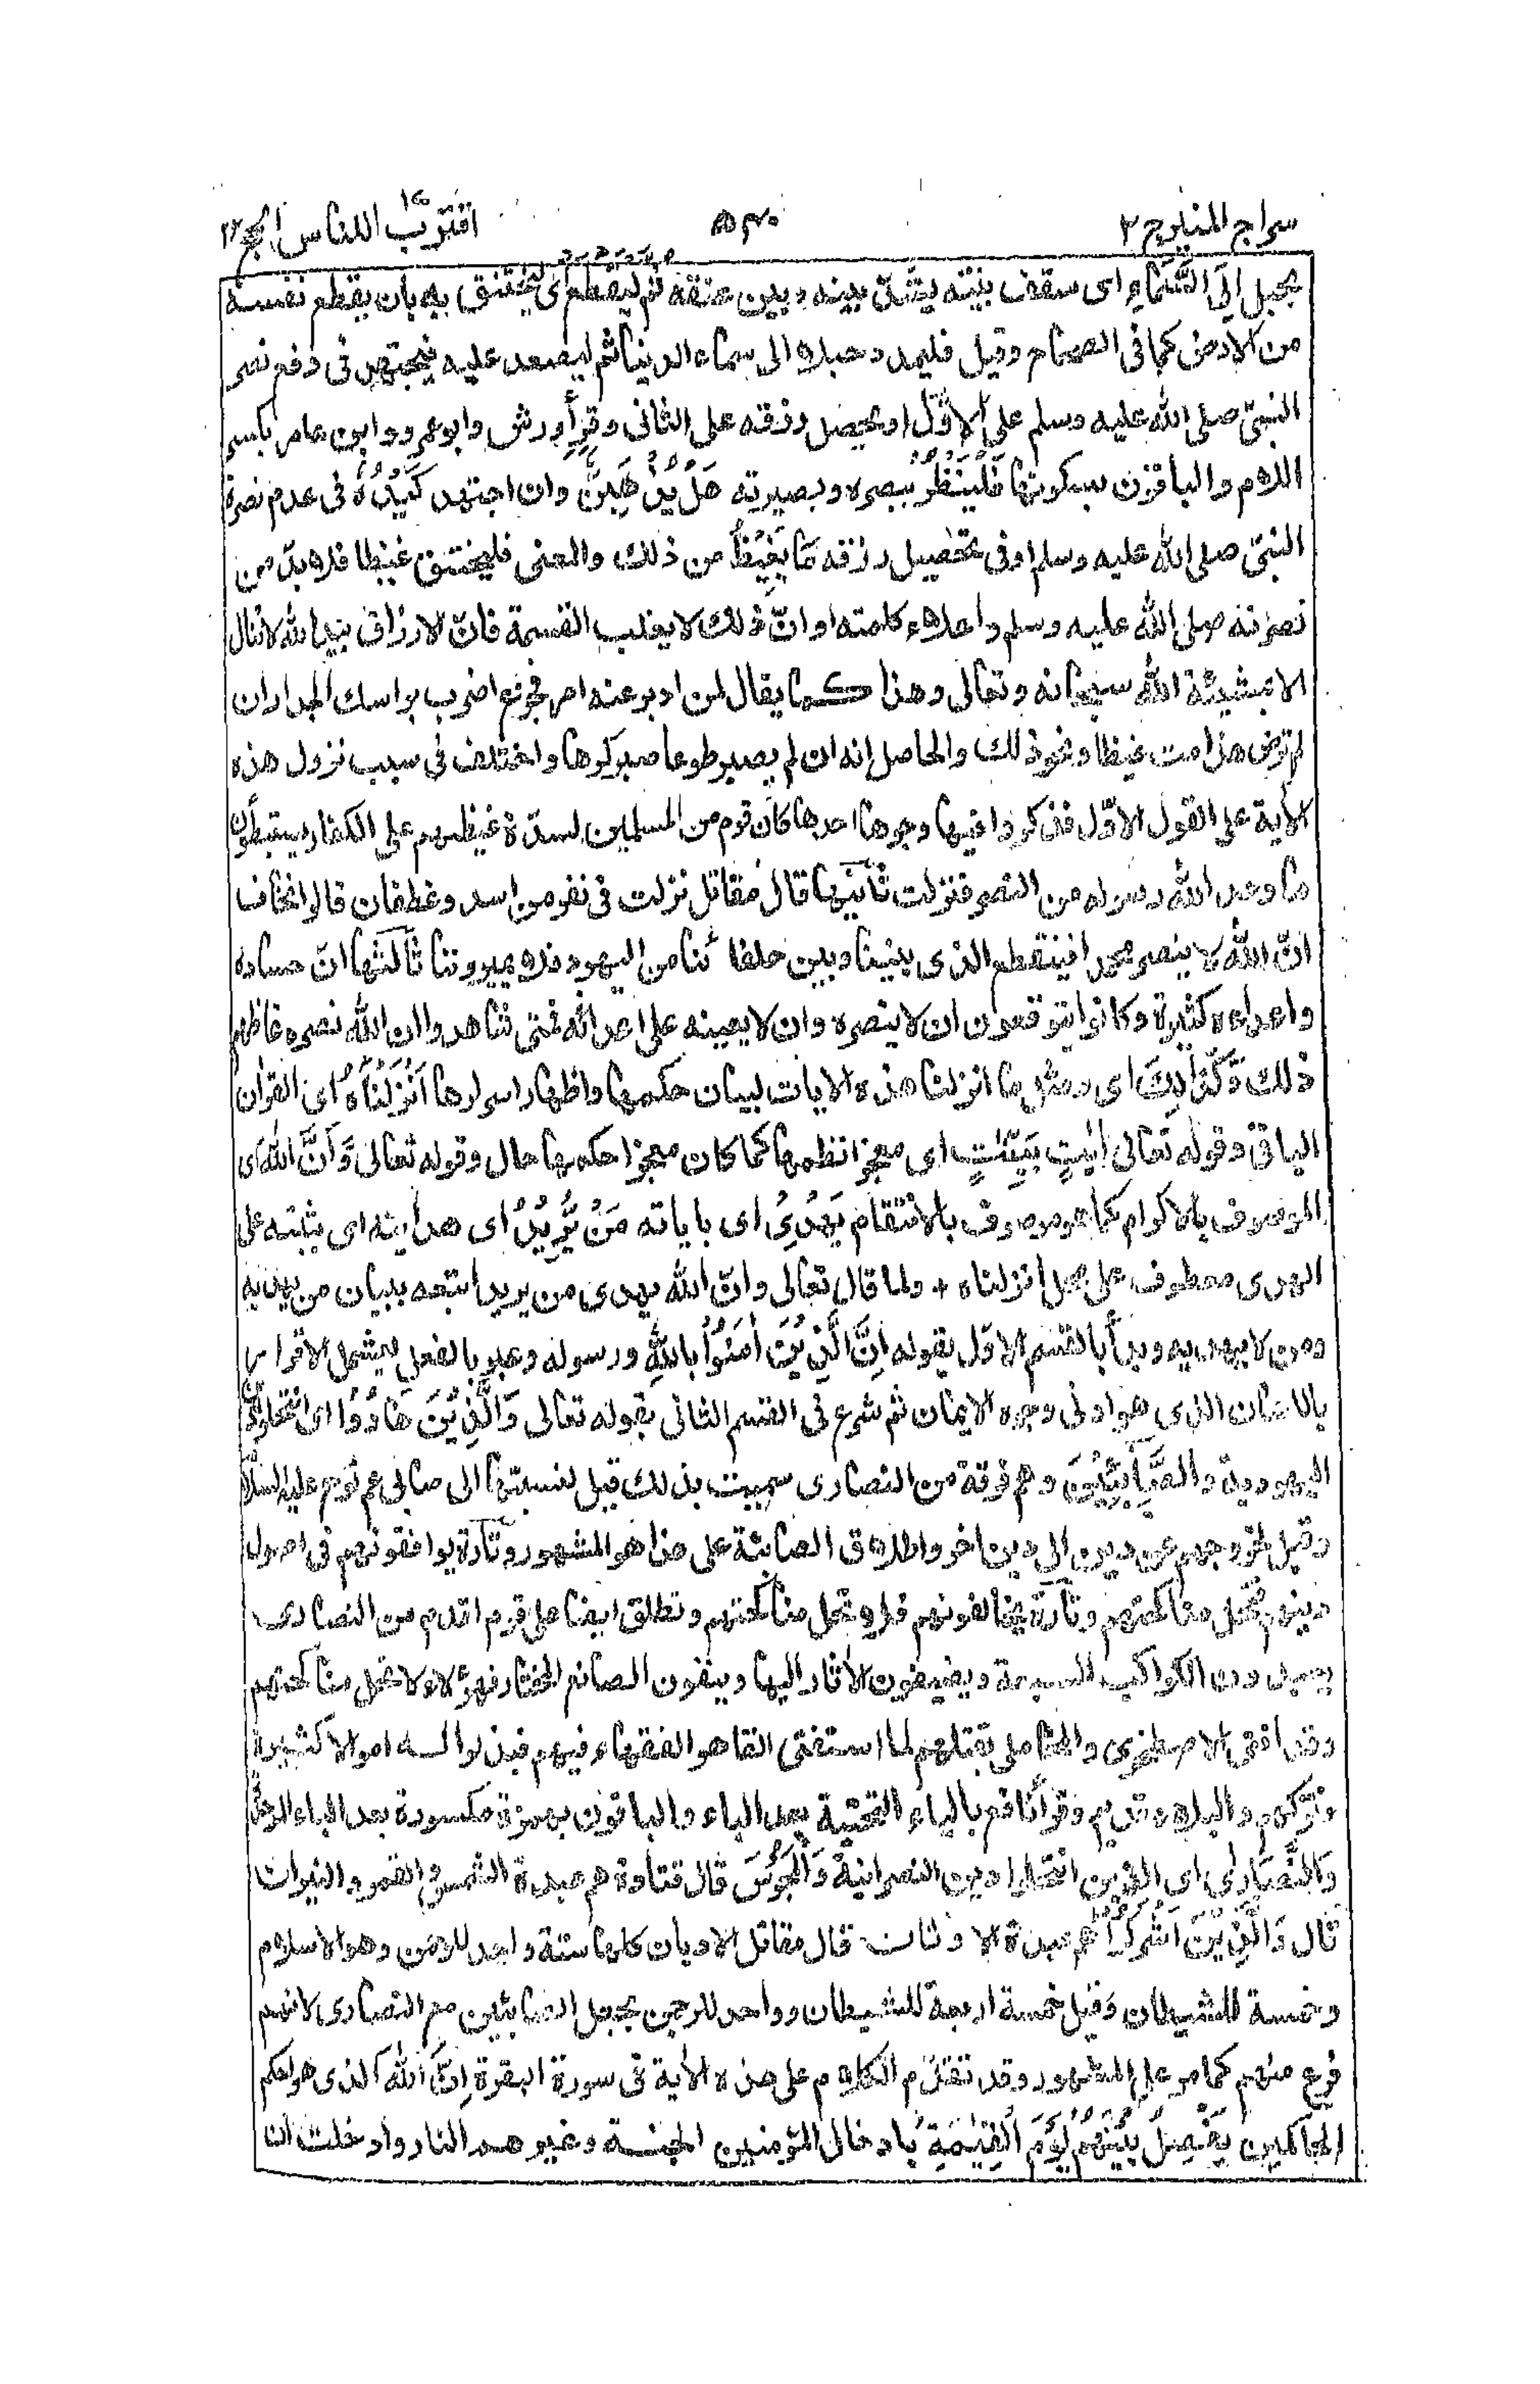 سراج المنير ج ٢
٥٣٠
اقترب للناس ١٧ الحج ٢٢
بحبل اِلَى السَّمَاءِ اى سقف بيته يشدّ بينه وبين عنقه ثم ليقطع اى ليختنق به بان يقطع نفسه
من الارض كما فى الصحاح وقيل فليمدد حبلا الى سماء الدنيا ثم ليصعد عليه فيجتهد فى دفع نصر
النبىّ صلى الله عليه وسلم على الاوّل او يحصل رزقه على الثانى وقرأ ورش وابو عمرو وابن عامر بكسر
اللام والباقون بسكونها فَلْيَنْظُرْ ببصره وبصيرته هَلْ يُذْهِبَنَّ وان اجتهد كَيْدُهٗ فى عدم نصرة
النبىّ صلى الله عليه وسلم او فى تحصيل رزقه مَا يَغِيْظُ من ذلك والمعنى فليختنق غيظا فلا بدّ من
نصرته صلى الله عليه وسلم واعلاء كلمته او انّ ذلك لا يغلب القسمة فانّ الارزاق بيد الله لا تنال
الا بمشيئة الله سبحانه وتعالى وهذا كما يقال لمن ادبر عنه امر فجزع اضرب براسك الجدار ان
لم ترض هذا مت غيظا ونحو ذلك والحاصل انه ان لم يصبر طوعا صبر كرها واختلف فى سبب نزول هذه
الأية على القول الاوّل فذكروا فيها وجوها احدها كان قوم من المسلمين لشدّة غيظهم على الكفار يستبطؤن
ما وعد الله رسوله من النصر فنزلت ثانيها قال مقاتل نزلت فى نفر من اسد وغطفان قالوا نخاف
انّ الله لا ينصر محمدا فينقطع الذى بيننا وبين حلفائنا من اليهود فلا يميروننا ثالثها انّ حساده
واعداءه كثيرة وكانوا يتوقعون ان لا ينصره وان لا يعينه على اعدائه فمتى شاهدوا ان الله نصره غاظهم
ذلك وَكَذٰلِكَ اى ومثل ما انزلنا هذه الايات لبيان حكمها واظهار اسرارها اَنْزَلْنَاهُ اى القران
الباقى وقوله تعالى اٰيٰتٍ بَيِّنٰتٍ اى معجزا نظمها كما كان معجزا حكمها حال وقوله تعالى وَّاَنَّ اللهَ اى
الموصوف بالاكرام كما هو موصوف بالانتقام يَهْدِىْ اى باياته مَنْ يُّرِيْدُ اى هدايته اى يثبته على
الهدى معطوف على محل انزلناه + ولما قال تعالى وانّ الله يهدى من يريد اتبعه ببيان من يهديه
ومن لا يهديه وبدأ بالقسم الاوّل بقوله اِنَّ الَّذِيْنَ اٰمَنُوْا بِاللهِ ورسوله وعبر بالفعل ليشمل الاقرار
باللسان الذى هو ادنى وجوه الايمان ثم شرع فى القسم الثانى بقوله تعالى وَالَّذِيْنَ هَادُوْا اى انتحلوا
اليهودية والصَّابِئِيْنَ وهم فرقة من النصارى سميت بذلك قيل لنسبتها الى صابئ عم نوح عليه السلام
وقيل لخروجهم عن دين الى دين اخر واطلاق الصابئة على هذا هو المشهور وتارة يوافقونهم فى اصول
دينهم فتحل مناكحتهم وتارة يخالفونهم فلا تحل مناكحتهم وتطلق ايضا على قوم اقدم من النصارى
يعبدون الكواكب السبعة ويضيفون الأثار اليها وينفون الصانع المختار فهؤلاء لا تحل مناكحتهم
وقد افتى الاصطخرى والمحاملى بقتلهم لما استفتى القاهر الفقهاء فيهم فبذلوا له اموالا كثيرة
وتركهم والبلاء قديم وقرأ نافع بالياء التحتية بعد الباء والباقون بهمزة مكسورة بعد الباء الموحدة
وَالنَّصَارٰى اى الذين انتحلوا دين النصرانية وَالْمَجُوْسَ قال قتادة هم عبدة الشمس والقمر والنيران
قال وَالَّذِيْنَ اَشْرَكُوْا هم عبدة الاوثان قال مقاتل الاديان كلها ستة واحد للرحمن وهو الاسلام
وخمسة للشيطان وقيل خمسة اربعة للشيطان وواحد للرحمن بجعل الصابئين مع النصارى لانهم
فرع منهم كما مر على المشهور وقد تقدّم الكلام على هذه الأية فى سورة البقرة اِنَّ اللهَ الذى هو احكم
الحاكمين يَفْصِلُ بَيْنَهُمْ يَوْمَ الْقِيٰمَةِ بادخال المؤمنين الجنة وغيرهم النار وادخلت ان